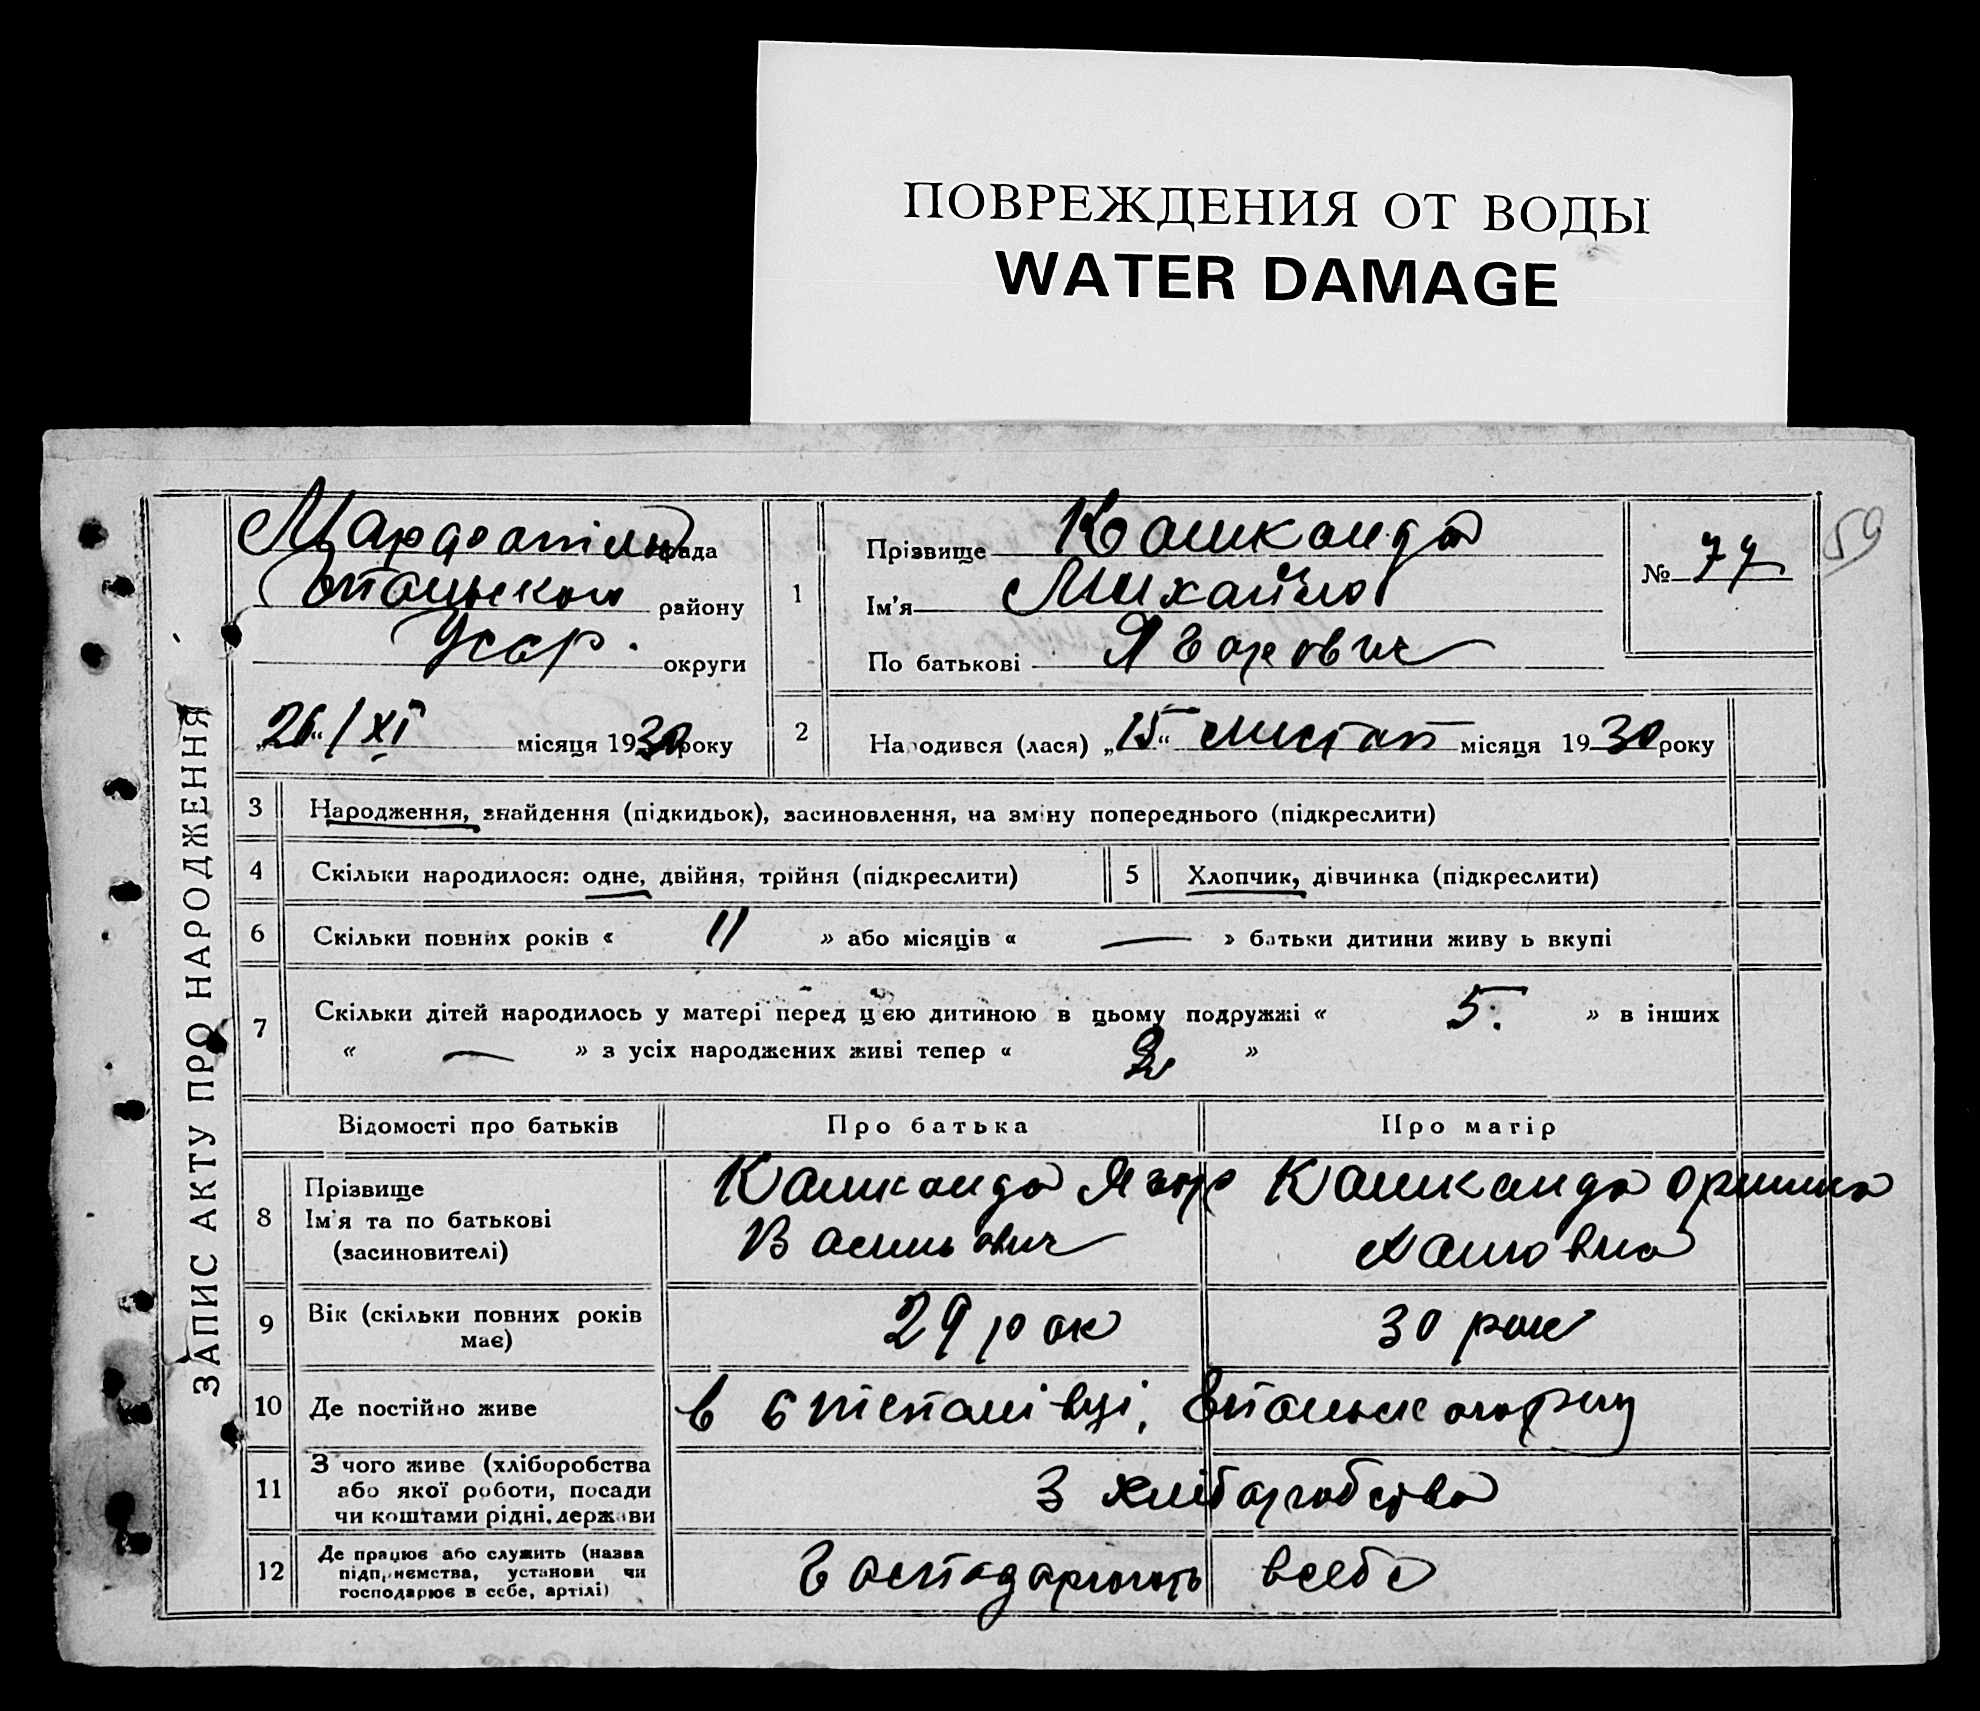 ПОВРЕЖДЕНИЯ ОТ ВОДЫ
WATER DAMAGE
59
ЗАПИС АКТУ ПРО НАРОДЖЕННЯ
рада
району
округи
„26“ / XI місяця 1930 року
1
Прізвище Кашканда
Ім'я Михайло
По батькові Ягорович
№
2
Народився (лася) „15“ листоп місяця 1930 року
3 Народження, знайдення (підкидьок), засиновлення, на зміну попереднього (підкреслити)
4 Скільки народилося: одне, двійня, трійня (підкреслити)
5 Хлопчик, дівчинка (підкреслити)
6 Скільки повних років « 11 » або місяців « — » батьки дитини живуть вкупі
7 Скільки дітей народилось у матері перед цією дитиною в цьому подружжі « 5. » в інших
« — » з усіх народжених живі тепер « »
Відомості про батьків
Про батька
Про матір
8 Прізвище
Ім'я та по батькові
(засиновителі)
Кашканда Ягор
Васильович
Кашканда Оришка
9 Вік (скільки повних років
має)
29 рок
30 рок
10 Де постійно живе
в Степанівці,
11 З чого живе (хліборобства
або якої роботи, посади
чи коштами рідні, держави
З хліборобства
12 Де працює або служить (назва
підприємства, установи чи
господарює в себе, артілі)
Господарюють всебе